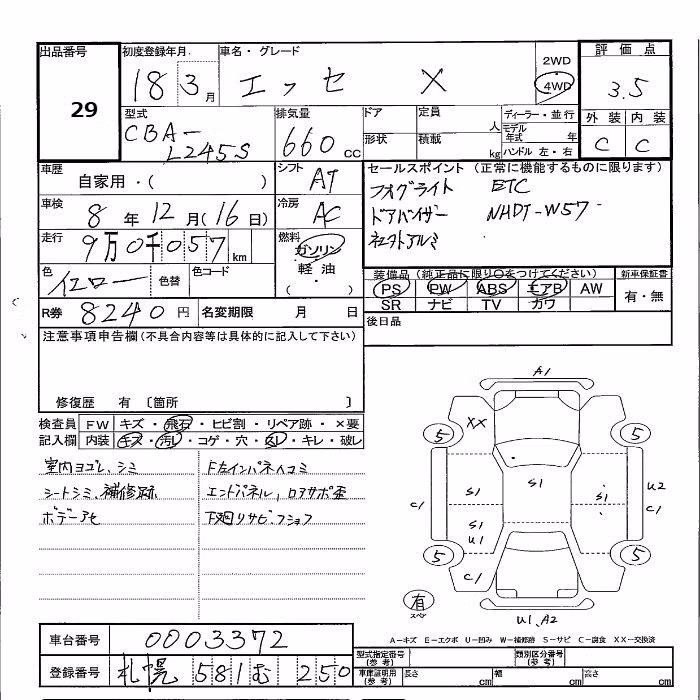 出品番号 初度登録年月 車名・グレード 2WD 評価点
29 18 3月 エッセ X 4WD 3.5
型式 排気量 ドア 定員 人 ディーラー・並行 外装 内装
CBA-L245S 660cc 形状 積載 kg モデル年式 年 ハンドル 左・右 C C
車歴 シフト セールスポイント(正常に機能するものに限ります)
自家用・( ) AT フォグライト ETC
車検 冷房 ドアバイザー NHDT-W57
8年12月(16日) AC 社外アルミ
走行 燃料
9万0千057km ガソリン
色 色替 色コード 軽油 装備品(純正品に限り○をつけてください) 新車保証書
イエロー (・) PS PW ABS エアB AW 有・無
R券 8240円 名変期限 月 日 SR ナビ TV カワ
注意事項申告欄(不具合内容等は具体的に記入して下さい) 後日品
修復歴 有 〔箇所 〕
検査員 FW キズ・飛石・ヒビ割・リペア跡・×要
記入欄 内装 キズ・汚レ・コゲ・穴・スレ・キレ・破レ
室内ヨゴレ、シミ F左インパネヘコミ
シートシミ、補修跡 エンドパネル、ロアサポ歪
ボデーアセ 下廻りサビ、フショク
A1
XX
5 5
C1 S1 S1 S1 U2
C1
S1
U1
5 5
C1
有
スペア
U1、A2
A-キズ E-エクボ U-凹み W-補修跡 S-サビ C-腐食 XX-交換済
車台番号 0003372 型式指定番号(参考) 類別区分番号(参考)
登録番号 札幌 581 む 250 車庫証明用(参考) 長さ cm 幅 cm 高さ cm